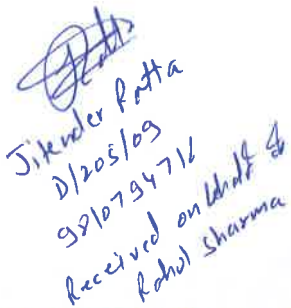 Jitender Ratta
D/205/09
9810794716
Received on behalf of
Rahul Sharma